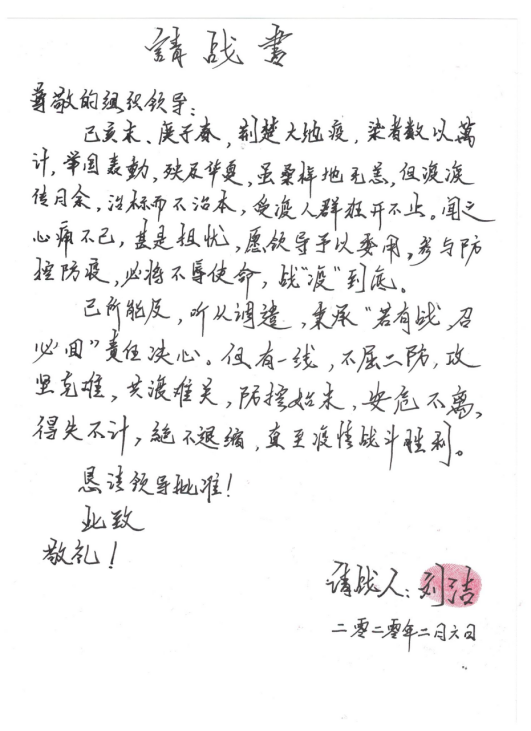 請战書
尊敬的组织领导:
己亥末、庚子春,荆楚大地疫,染者数以萬
计,举国轰動,殃及华夏,虽桑梓地无恙,但疫疫
传月余,治标而不治本,受疫人群狂升不止。闻之
心痛不已,甚是担忧,愿领导予以委用,参与防
控防疫,必将不辱使命,战"疫"到底。
己所能及,听从调遣,秉承"若有战,召
必回"责任决心。但有一线,不屈二防,攻
坚克难,共渡难关,防控始末,安危不离,
得失不计,絕不退缩,直至疫情战斗胜利。
恳请领导批准!
此致
敬礼!
请战人:刘洁
二零二零年二月六日